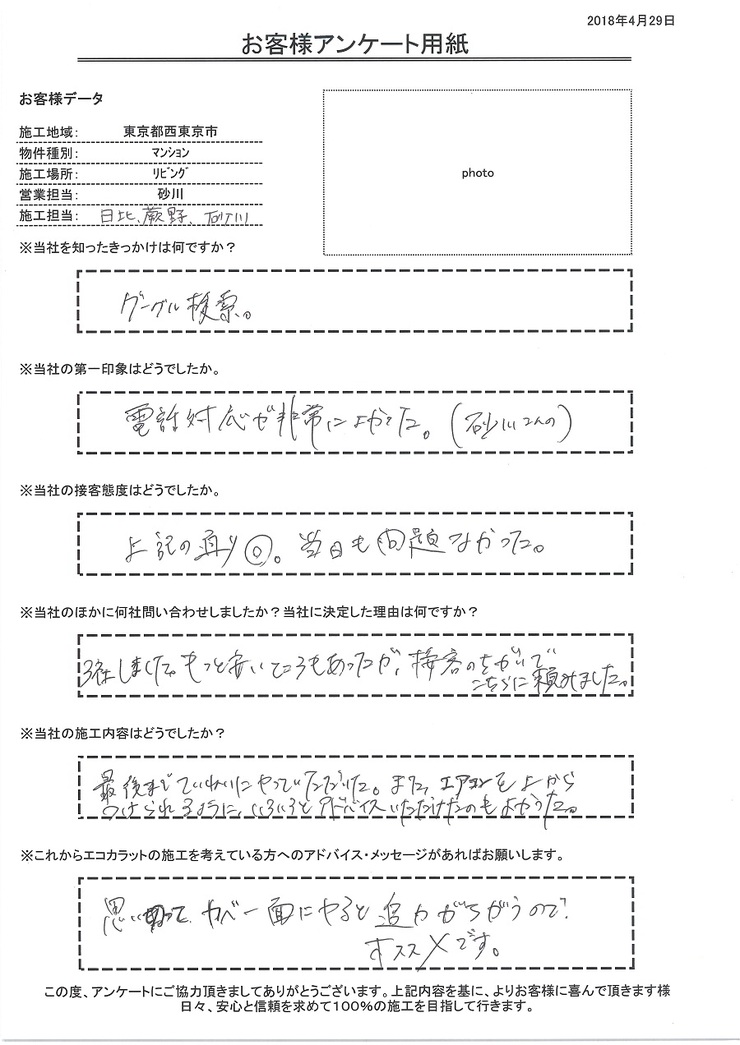 2018年4月29日
お客様アンケート用紙
お客様データ
施工地域： 東京都西東京市
物件種別： ﾏﾝｼｮﾝ
施工場所： ﾘﾋﾞﾝｸﾞ
営業担当： 砂川
施工担当： 日比、蕨野、砂川
photo
※当社を知ったきっかけは何ですか？
グーグル検索。
※当社の第一印象はどうでしたか。
電話対応が非常によかった。(砂川さんの)
※当社の接客態度はどうでしたか。
上記の通り◎。当日も問題なかった。
※当社のほかに何社問い合わせしましたか？当社に決定した理由は何ですか？
3社しました。もっと安いところもあったが、接客のちがいで
こちらに頼みました。
※当社の施工内容はどうでしたか？
最後までていねいにやっていただいた。また、エアコンを上から
つけられるように、いろいろとアドバイスいただけたのもよかった。
※これからエコカラットの施工を考えている方へのアドバイス・メッセージがあればお願いします。
思い切って、カベ一面にやると迫力がちがうので、
オススメです。
この度、アンケートにご協力頂きましてありがとうございます。上記内容を基に、よりお客様に喜んで頂きます様
日々、安心と信頼を求めて100％の施工を目指して行きます。